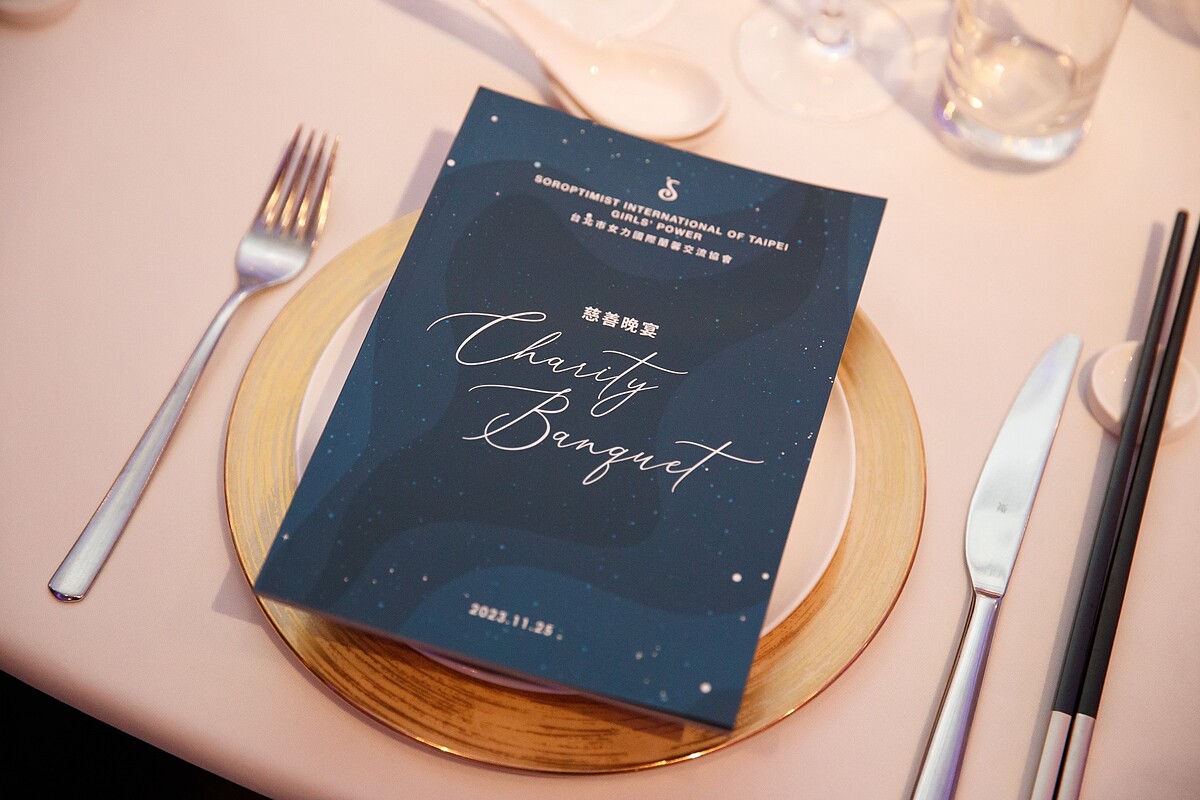 SOROPTIMIST INTERNATIONAL OF TAIPEI
GIRLS' POWER
台北市女力國際蘭馨交流協會
慈善晚宴
Charity
Banquet
2023.11.25